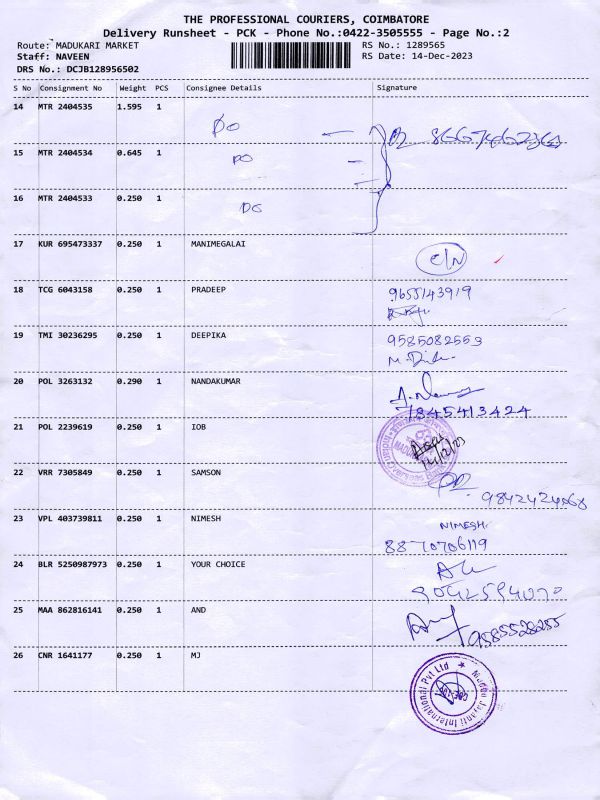 THE PROFESSIONAL COURIERS, COIMBATORE
Delivery Runsheet - PCK - Phone No.:0422-3505555 - Page No.:2
Route: MADUKARI MARKET RS No.: 1289565
Staff: NAVEEN RS Date: 14-Dec-2023
DRS No.: DCJB128956502
S No Consignment No Weight PCS Consignee Details Signature
14 MTR 2404535 1.595 1
15 MTR 2404534 0.645 1
16 MTR 2404533 0.250 1
17 KUR 695473337 0.250 1 MANIMEGALAI C/N
18 TCG 6043158 0.250 1 PRADEEP 9655143919
19 TMI 30236295 0.250 1 DEEPIKA 9585082553
20 POL 3263132 0.290 1 NANDAKUMAR
7845413424
21 POL 2239619 0.250 1 IOB
14/12/23
22 VRR 7305849 0.250 1 SAMSON
23 VPL 403739811 0.250 1 NIMESH NIMESH.
8870706119
24 BLR 5250987973 0.250 1 YOUR CHOICE
25 MAA 862816141 0.250 1 AND
9585528255
26 CNR 1641177 0.250 1 MJ
International Pvt Ltd